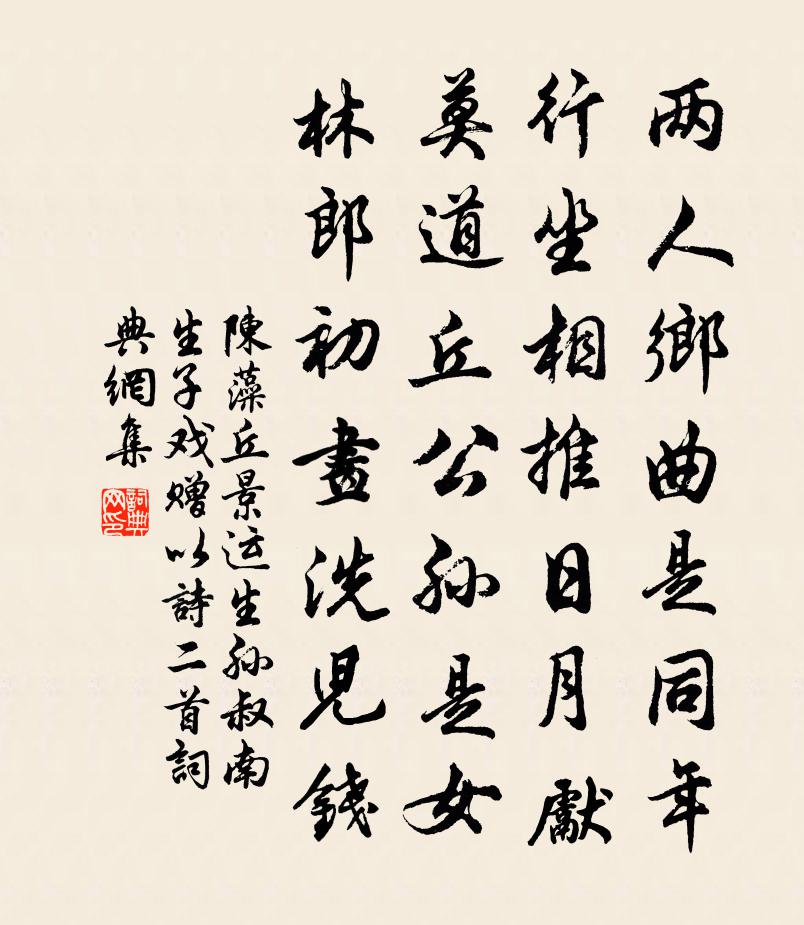 两人鄉曲是同年
行坐相推日月獻
莫道丘公孙是女
林郎初畫洗児錢
陳藻丘景运生孙叔南
生子戏赠以詩二首詞
典網集
詞典网印